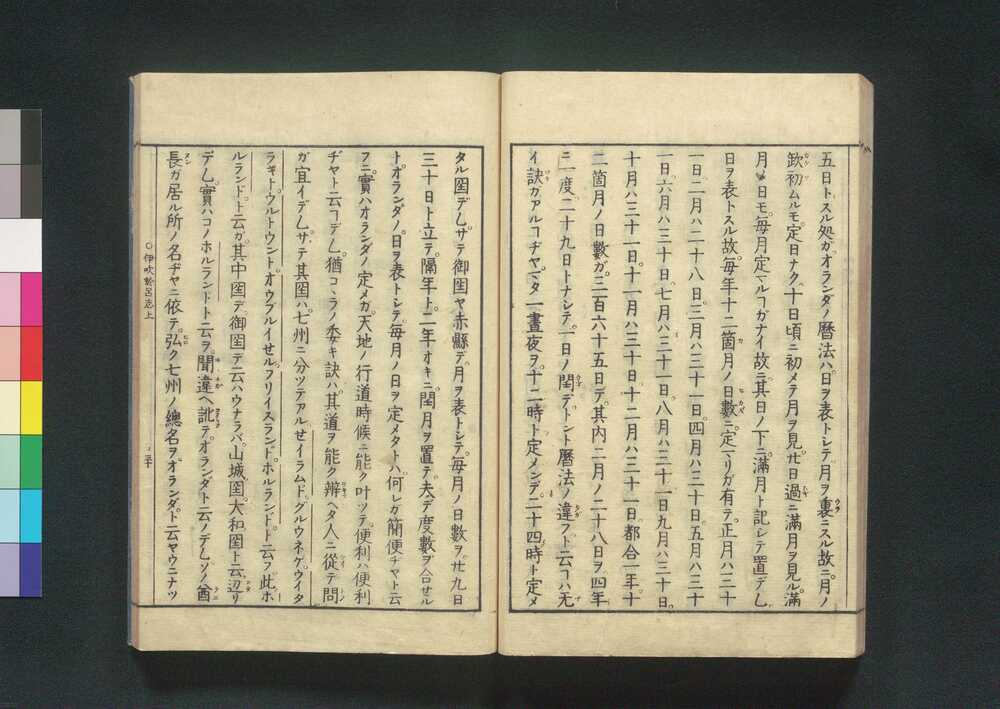 五日トスル処ガオランダノ暦法ハ日ヲ表トシテ月ヲ裏ニスル故ニ月ノ
欽初ムルモ定日ナク十日頃ニ初メテ月ヲ見廿日過ニ満月ヲ見ル満
月ノ日モ毎月定マルヿガナイ故ニ其日ノ下ニ満月ト記シテ置デム
日ヲ表トスル故毎年十二箇月ノ日數ニ定マリガ有テ正月ハ三十
一日二月ハ二十八日三月ハ三十一日四月ハ三十日五月ハ三十
一日六月ハ三十日七月ハ三十一日八月ハ三十一日九月ハ三十日
十月ハ三十一日十一月ハ三十日十二月ハ三十一日都合一年十
二箇月ノ日數ガ三百六十五日デ其内二月ノ二十八日ヲ四年
ニ一度二十九日トナシテ一日ノ閏デトント暦法ノ違フト云ヿハ无
イ訣ガアルヿヂヤマタ一晝夜ヲ十二時ト定メンデ二十四時ト定メ
タル國デムサテ御國ヤ赤縣デ月ヲ表トシテ毎月ノ日數ヲ廿九日
三十日ト立テ隔年ト二年オキニ閏月ヲ置テ夫デ度數ヲ合セル
トオランダノ日ヲ表トシテ毎月ノ日ヲ定メタトハ何レガ簡便ヂヤト云
フニ實ハオランダノ定メガ天地ノ行道時候ニ能ク叶ツテ便利ハ便利
ヂヤト云ヿデム猶コヽラノ委キ訣ハ其道ヲ能ク辨ヘタ人ニ從テ問
ガ宜イデムサテ其國ハ七州ニ分ツテアルせイラムドグルウネゲウイタ
ラキトウルトウントオウブルイせルフリイスランドホルランドト云フ此ホ
ルランドト云ガ其中國デ御國デ云ハウナラバ山城國大和國ト云辺リ
デム實ハコノホルランドト云ヲ聞違ヘ訛テオランダト云ノデムソノ酋
長ガ居ル所ノ名ヂヤニ依テ弘ク七州ノ總名ヲオランダト云ヤウニナツ
○伊吹於呂志上